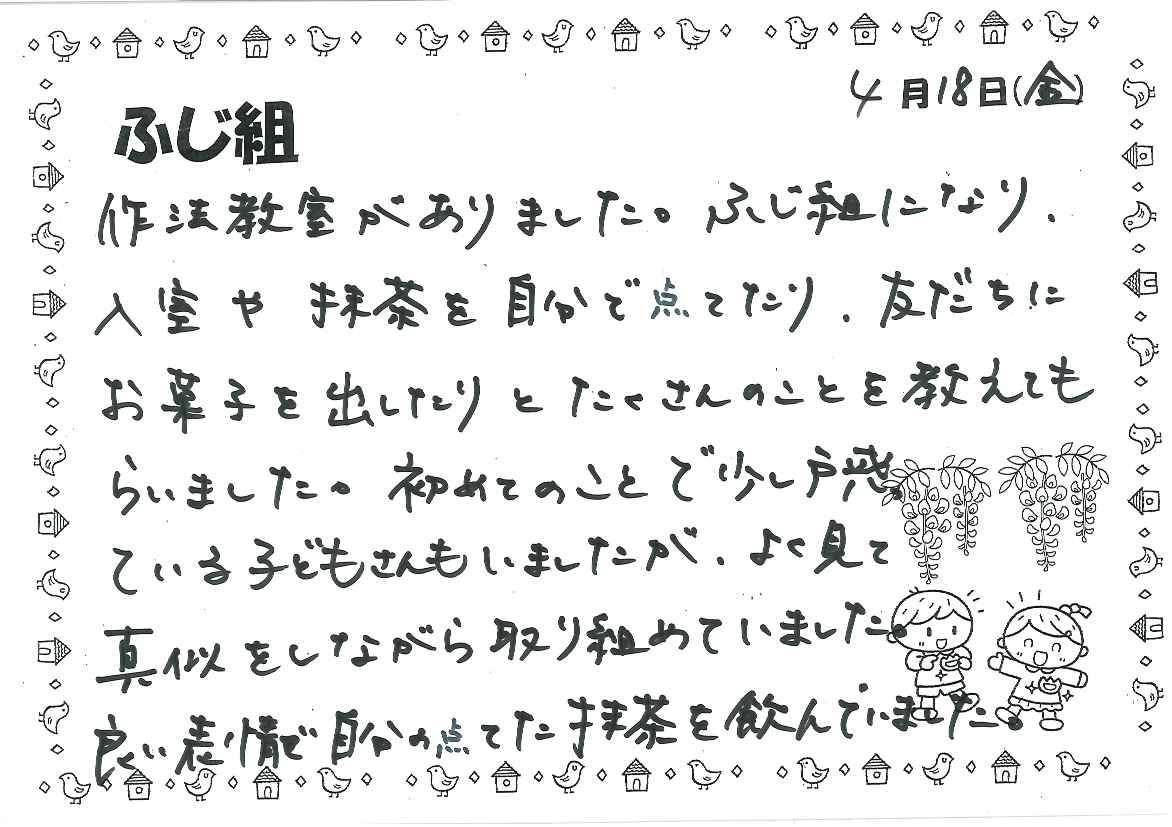 4月18日(金)
ふじ組
作法教室がありました。ふじ組になり、
入室や抹茶を自分で点てたり、友だちに
お菓子を出したりとたくさんのことを教えても
らいました。初めてのことで少し戸惑っ
ている子どもさんもいましたが、よく見て
真似をしながら取り組めていました。
良い表情で自分の点てた抹茶を飲んでいました。